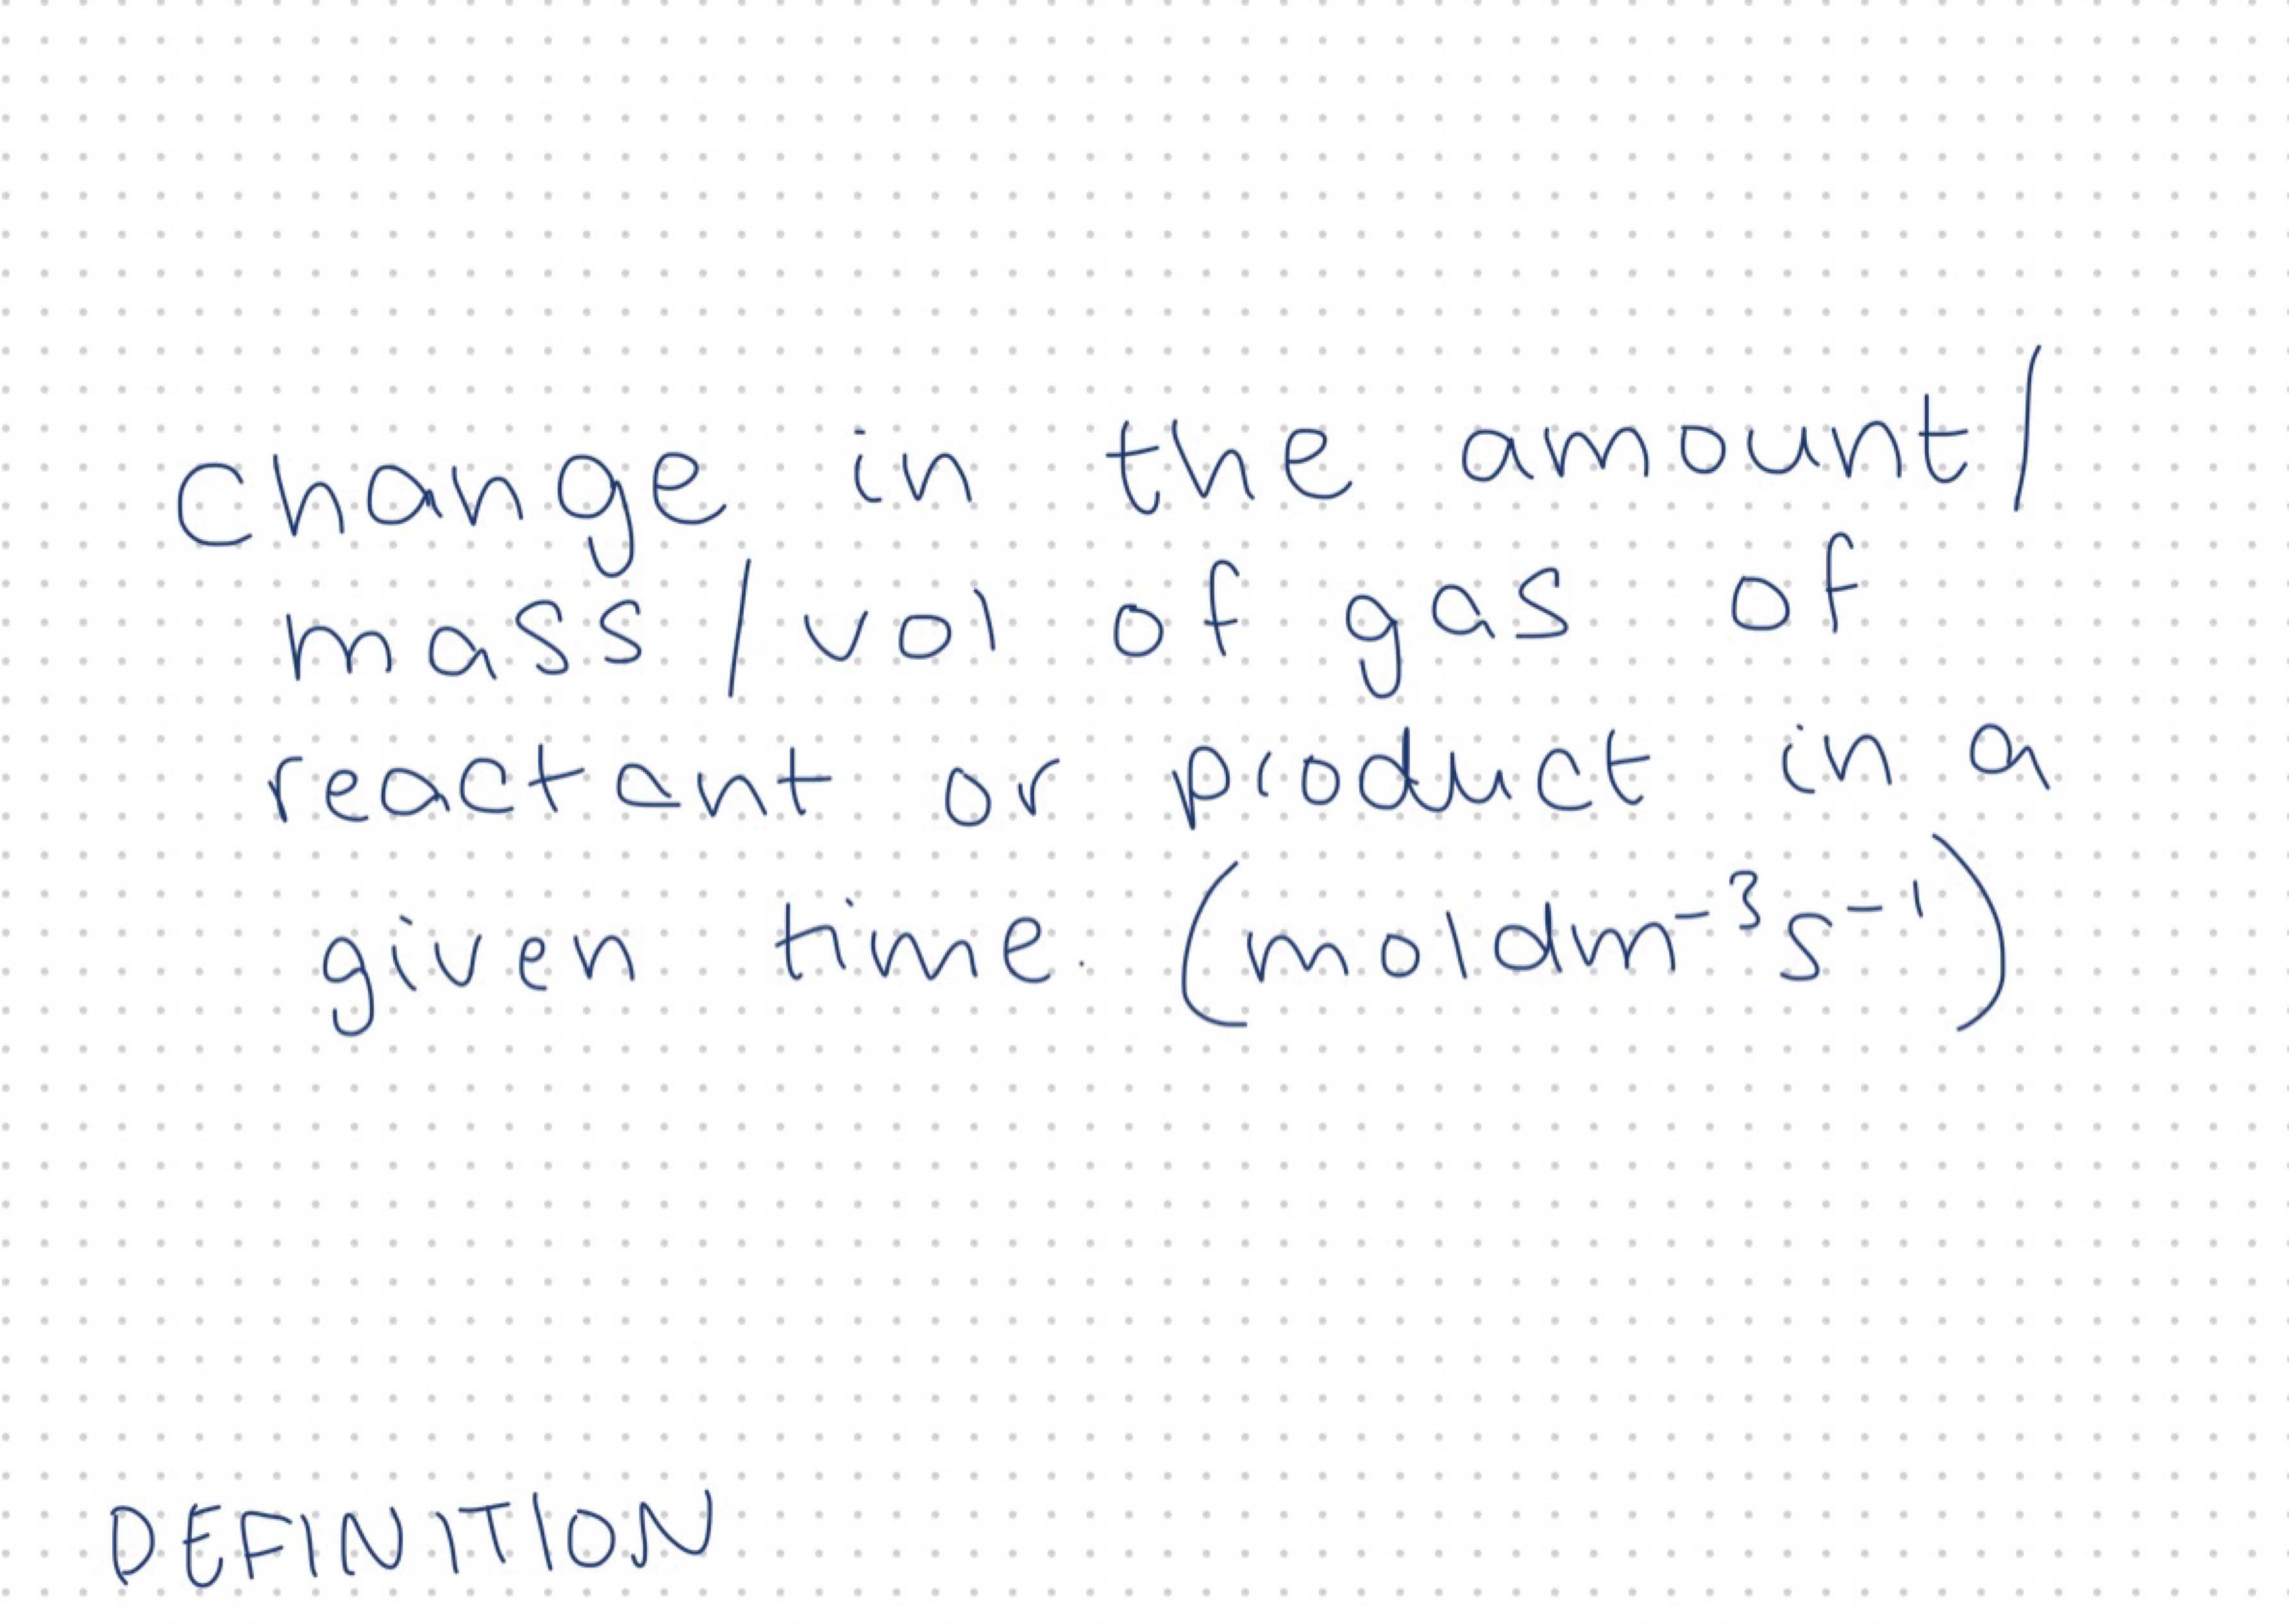 change in the amount/
mass/vol of gas of
reactant or product in a
given time. (moldm⁻³s⁻¹)
DEFINITION